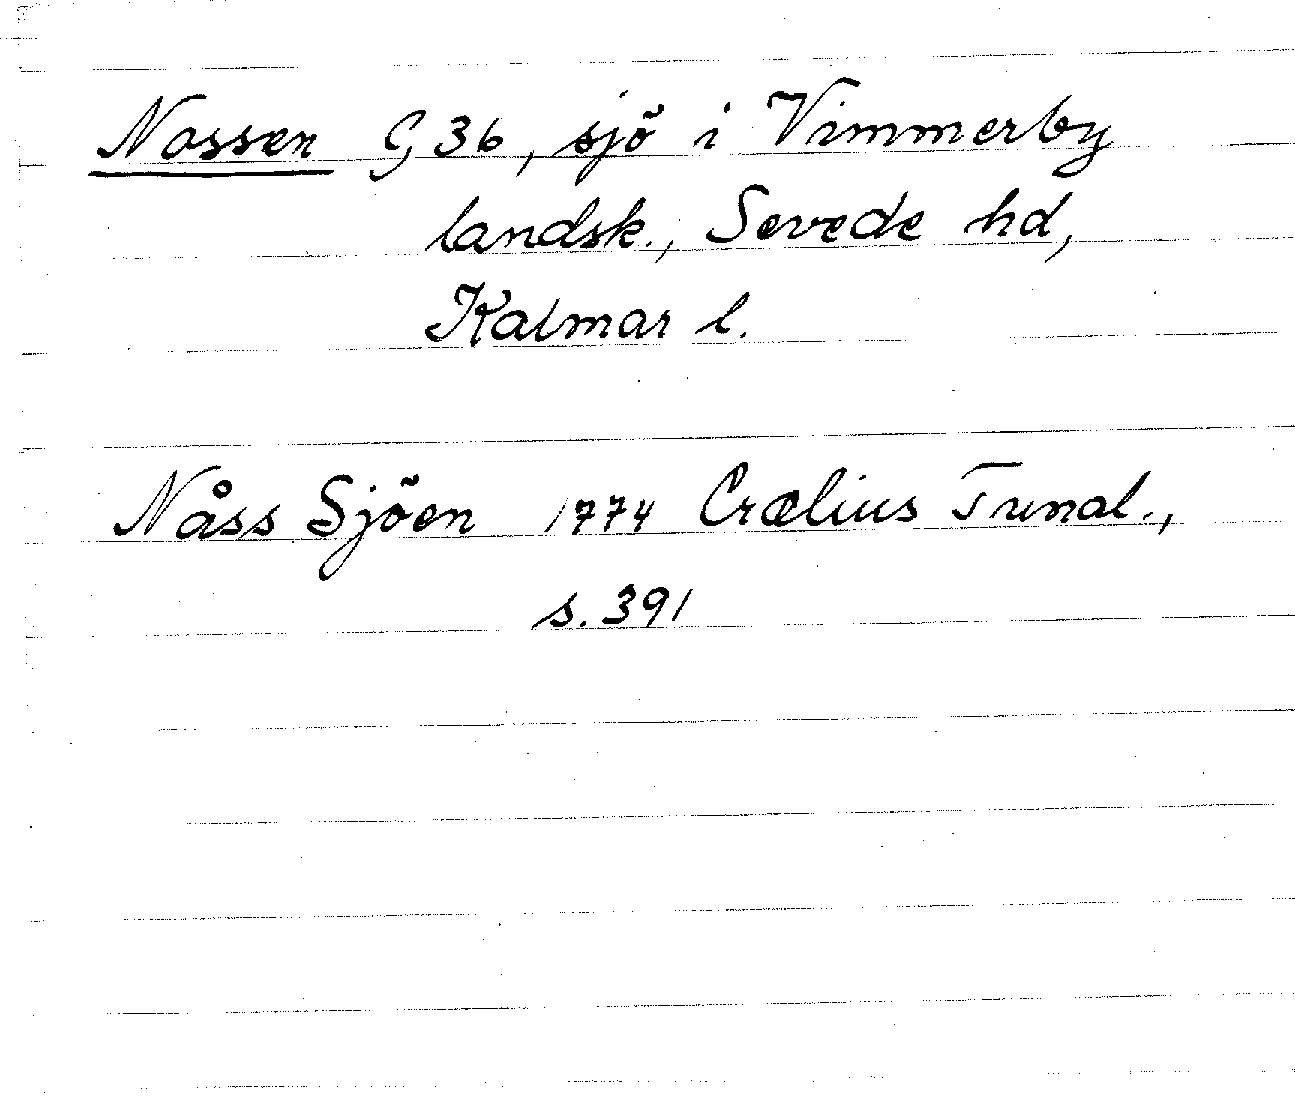 Nossen G36, sjö i Vimmerby
landsk., Sevede hd,
Kalmar l.
Nåss Sjöen 1774 Crælius Tunal.,
s. 391